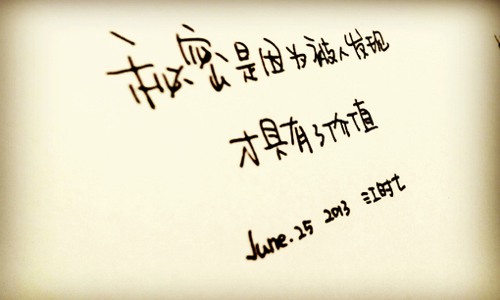 秘密是因为被人发现
才具有了价值
June.25 2013 江时七